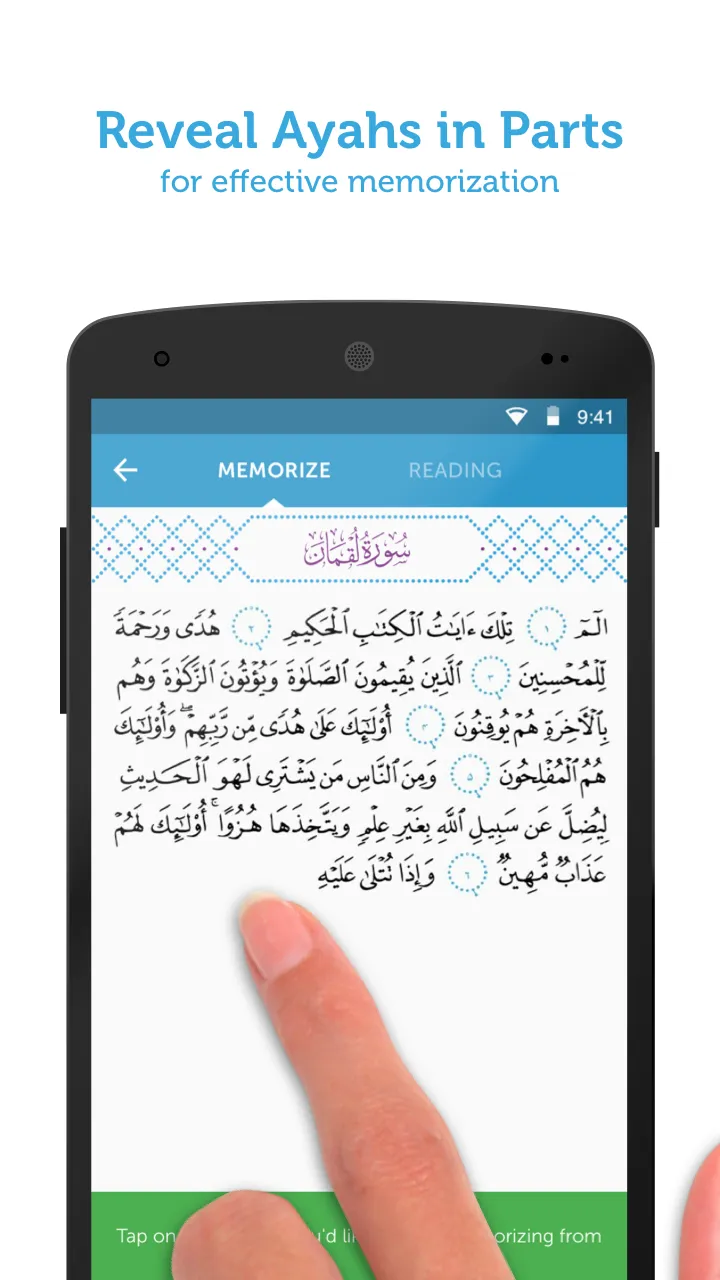 Reveal Ayahs in Parts
for effective memorization
9:41
MEMORIZE
READING
سُورَةُ لُقْمَانَ
الٓمٓ ١ تِلْكَ ءَايَٰتُ ٱلْكِتَٰبِ ٱلْحَكِيمِ ٢ هُدًى وَرَحْمَةً
لِّلْمُحْسِنِينَ ٣ ٱلَّذِينَ يُقِيمُونَ ٱلصَّلَوٰةَ وَيُؤْتُونَ ٱلزَّكَوٰةَ وَهُم
بِٱلْءَاخِرَةِ هُمْ يُوقِنُونَ ٤ أُو۟لَٰٓئِكَ عَلَىٰ هُدًى مِّن رَّبِّهِمْ ۖ وَأُو۟لَٰٓئِكَ
هُمُ ٱلْمُفْلِحُونَ ٥ وَمِنَ ٱلنَّاسِ مَن يَشْتَرِى لَهْوَ ٱلْحَدِيثِ
لِيُضِلَّ عَن سَبِيلِ ٱللَّهِ بِغَيْرِ عِلْمٍ وَيَتَّخِذَهَا هُزُوًا ۚ أُو۟لَٰٓئِكَ لَهُمْ
عَذَابٌ مُّهِينٌ ٦ وَإِذَا تُتْلَىٰ عَلَيْهِ
Tap on u'd li orizing from